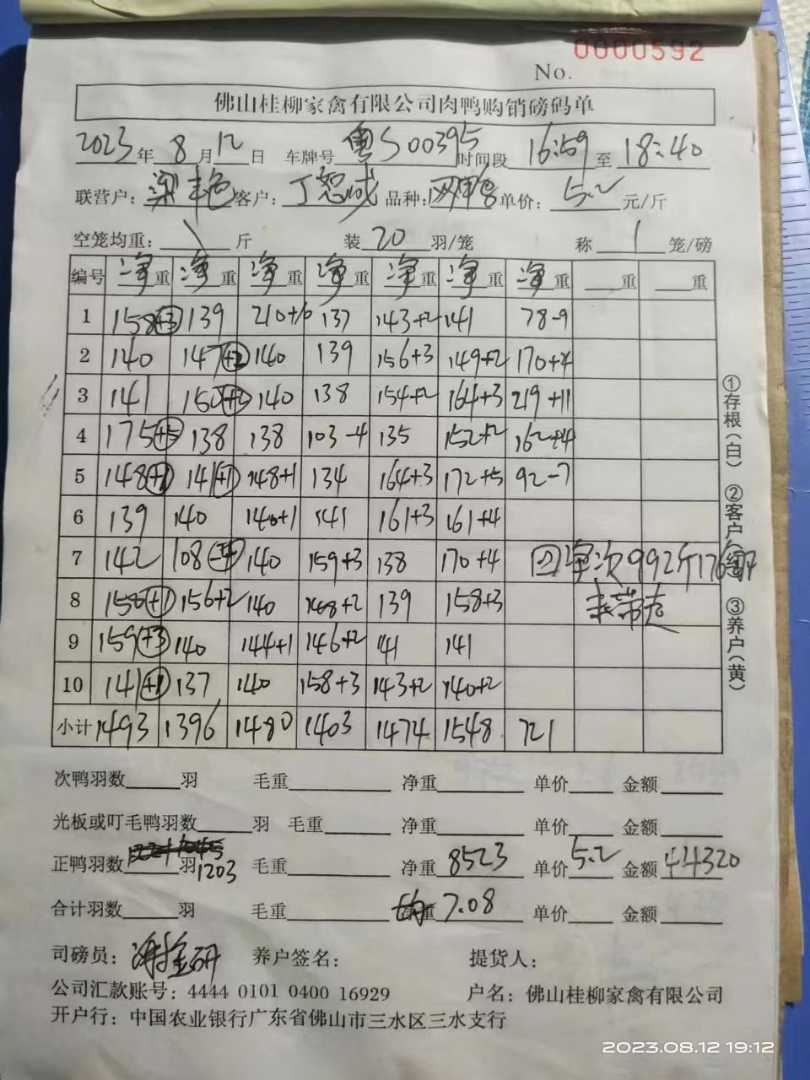 0000592
No.
佛山桂柳家禽有限公司肉鸭购销磅码单
2023年 8月12日 车牌号 粤S00395 时间段 16:59 至 18:40
联营户: 梁丰艳 客户: 丁恕成 品种: 单价: 5.2 元/斤
空笼均重: \ 斤 装 20 羽/笼 称 1 笼/磅
编号 净重 净重 净重 净重 净重 净重 净重 重 重
1 158+3 139 210+10 137 143+2 141 78-9
2 140 147+2 140 139 156+3 149+2 170+4
3 141 150+2 140 138 154+2 164+3 219+11
4 175+5 138 138 103-4 135 152+2 162+4
5 148+2 141+1 148+1 134 164+3 172+5 92-7
6 139 140 140+1 141 161+3 161+4
7 142 108-4 140 159+3 138 170+4 净次992斤176
8 150+1 156+2 140 148+2 139 158+3 未带走
9 159+3 140 144+1 146+2 141 141
10 141+1 137 140 158+3 143+2 140+2
小计 1493 1396 1480 1403 1474 1548 721
①存根(白) ②客户(红) ③养户(黄)
次鸭羽数 羽 毛重 净重 单价 金额
光板或叮毛鸭羽数 羽 毛重 净重 单价 金额
正鸭羽数 羽 1203 毛重 净重 8523 单价 5.2 金额 44320
合计羽数 羽 毛重 均重 7.08 单价 金额
司磅员: 养户签名: 提货人:
公司汇款账号: 4444 0101 0400 16929 户名: 佛山桂柳家禽有限公司
开户行: 中国农业银行广东省佛山市三水区三水支行
2023.08.12 19:12